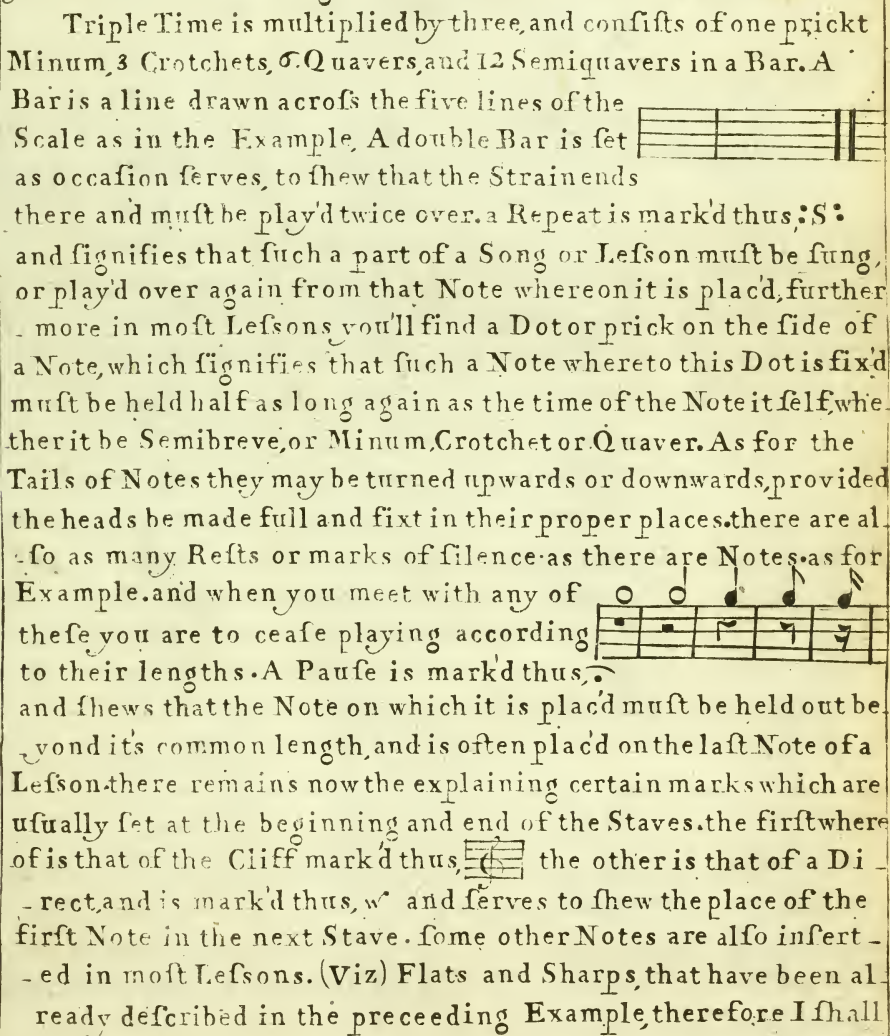 Triple Time is multiplied by three, and conſiſts of one prickt
Minum, 3 Crotchets, 6. Quavers, and 12 Semiquavers in a Bar. A
Bar is a line drawn acroſs the five lines of the
Scale as in the Example, A double Bar is ſet
as occaſion ſerves, to ſhew that the Strain ends
there and muſt be play'd twice over. a Repeat is mark'd thus, :S:
and ſignifies that ſuch a part of a Song or Leſson muſt be ſung,
or play'd over again from that Note whereon it is plac'd, further
- more in moſt Leſsons you'll find a Dot or prick on the ſide of
a Note, which ſignifies that ſuch a Note whereto this Dot is fix'd
muſt be held half as long again as the time of the Note it ſelf, whe-
ther it be Semibreve, or Minum, Crotchet or Quaver. As for the
Tails of Notes they may be turned upwards or downwards, provided
the heads be made full and fixt in their proper places. there are al-
- ſo as many Reſts or marks of ſilence. as there are Notes. as for
Example. and when you meet with any of
theſe you are to ceaſe playing according
to their lengths. A Pauſe is mark'd thus,
and ſhews that the Note on which it is plac'd muſt be held out be-
-yond it's common length, and is often plac'd on the laſt Note of a
Leſson. there remains now the explaining certain marks which are
uſually ſet at the beginning and end of the Staves. the firſt where
of is that of the Cliff mark'd thus, the other is that of a Di -
- rect, and is mark'd thus, w and ſerves to ſhew the place of the
firſt Note in the next Stave. ſome other Notes are alſo inſert -
- ed in moſt Leſsons. (Viz) Flats and Sharps, that have been al-
ready deſcribed in the preceeding Example, therefore I ſhall